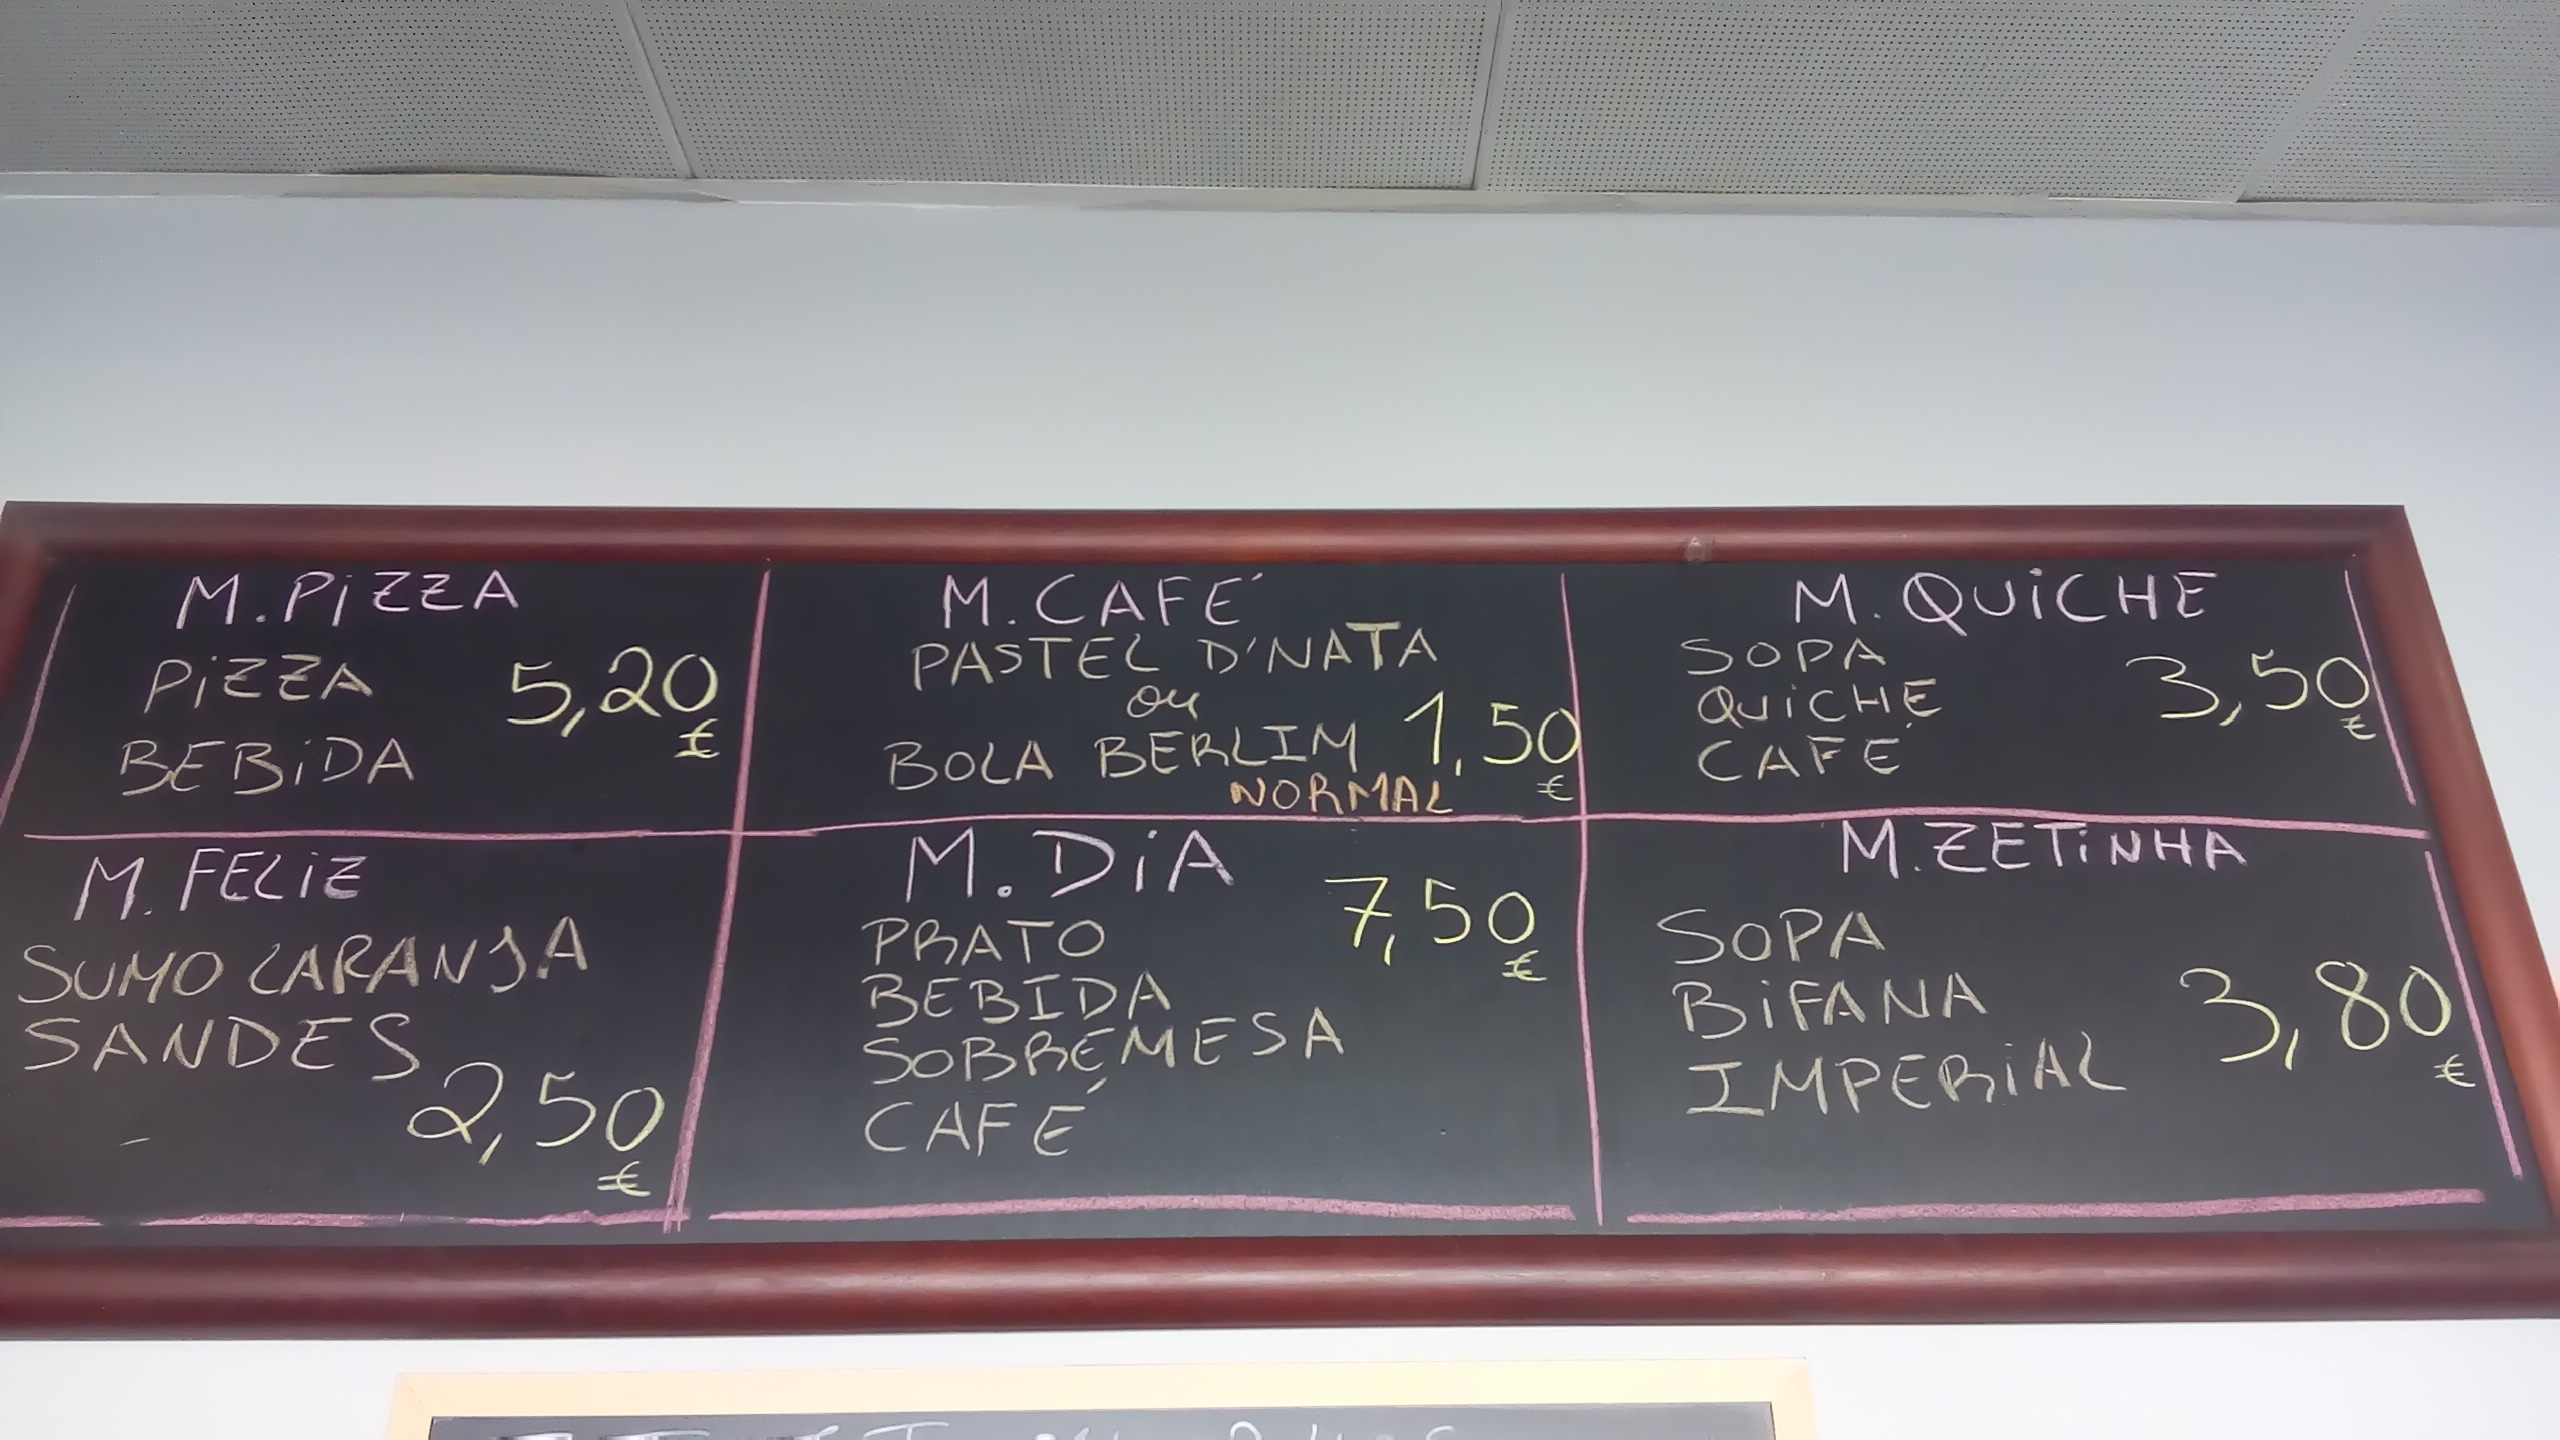 M. PiZZA
PiZZA 5,20 €
BEBiDA
M. CAFÉ
PASTEL D'NATA
ou
BOLA BERLIM 1,50 €
NORMAL
M. QUiCHE
SOPA
QUiCHE 3,50 €
CAFÉ
M. FELiZ
SUMO LARANJA
SANDES
2,50 €
M. DiA
PRATO 7,50 €
BEBIDA
SOBREMESA
CAFÉ
M. ZETiNHA
SOPA
BiFANA 3,80 €
IMPERiAL